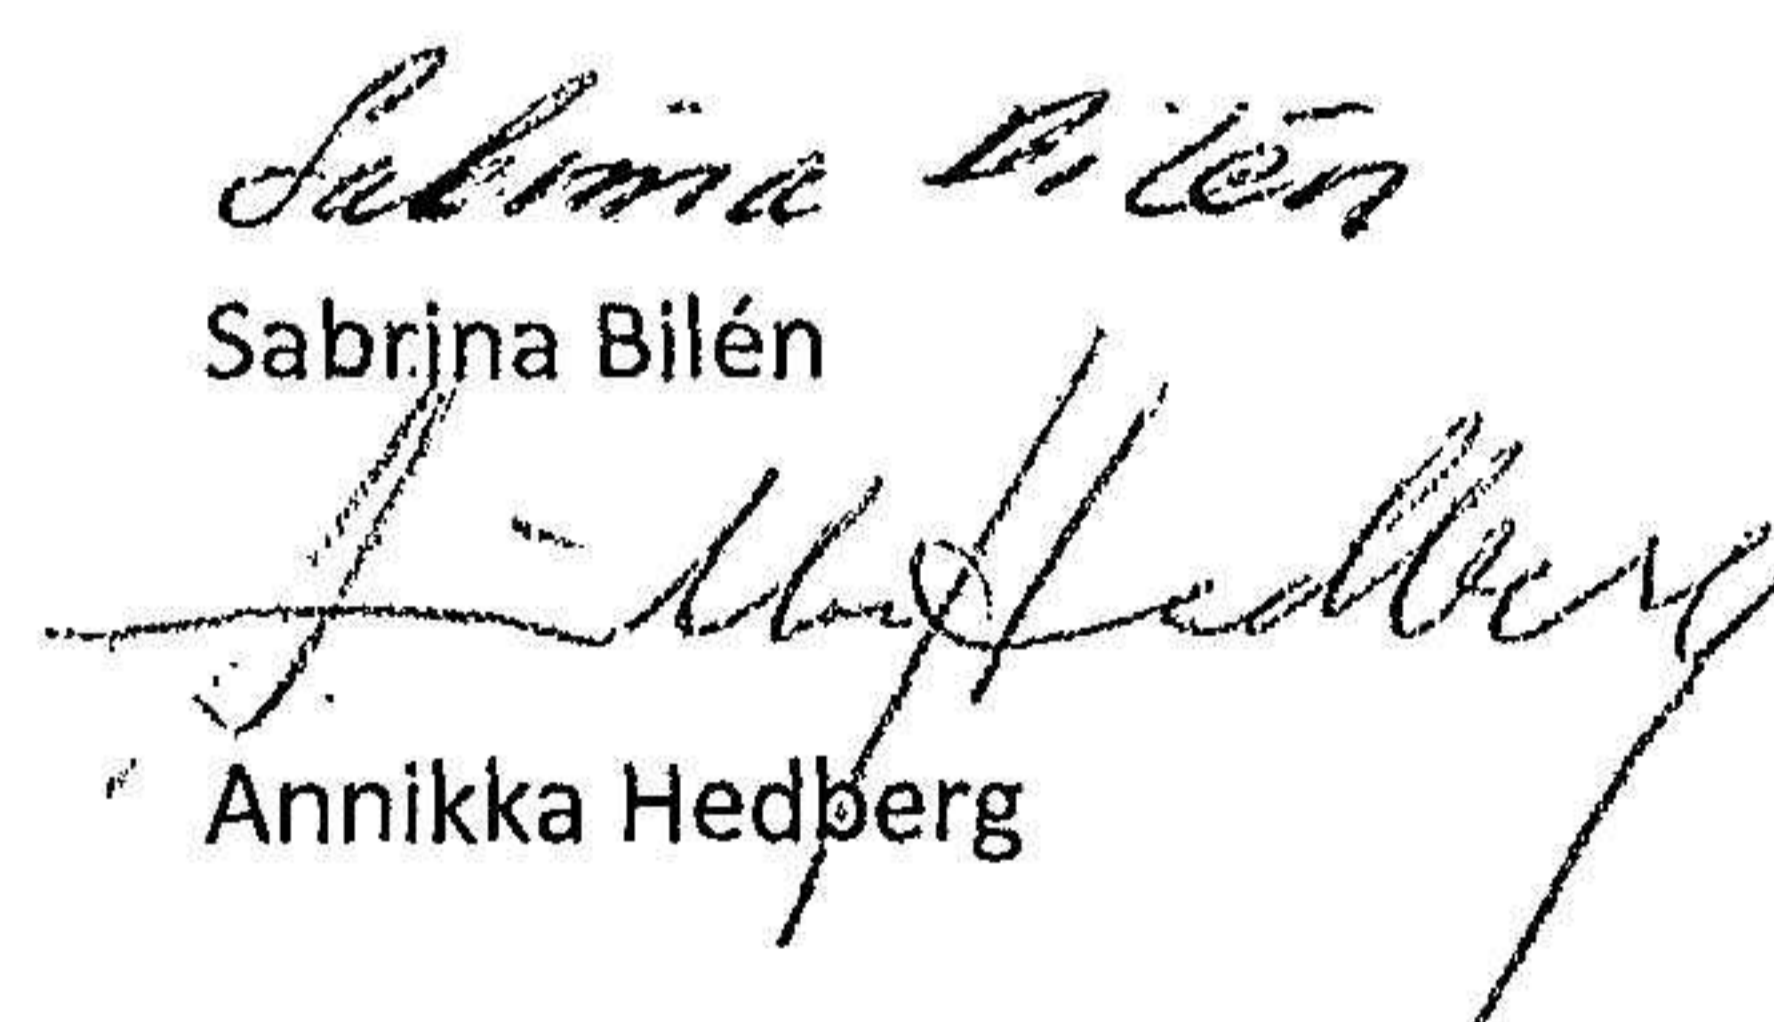 Sabrina Bilén
Sabrina Bilén
Annikka Hedberg
Annikka Hedberg